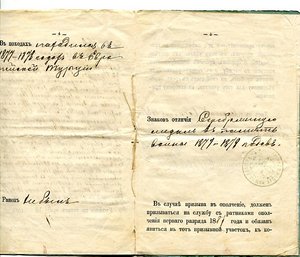 Въ походахъ находился въ
1877-1878 годахъ въ Евро
пейской Турціи
Раненъ не былъ
Знаковъ отличія Серебрянную
медаль въ память
войны 1877-1878 годовъ.
Въ случаѣ призыва въ ополченіе, долженъ
призываться на службу съ ратниками опол-
ченія перваго разряда 18 года и обязанъ
явиться на тотъ призывной участокъ, къ ко-